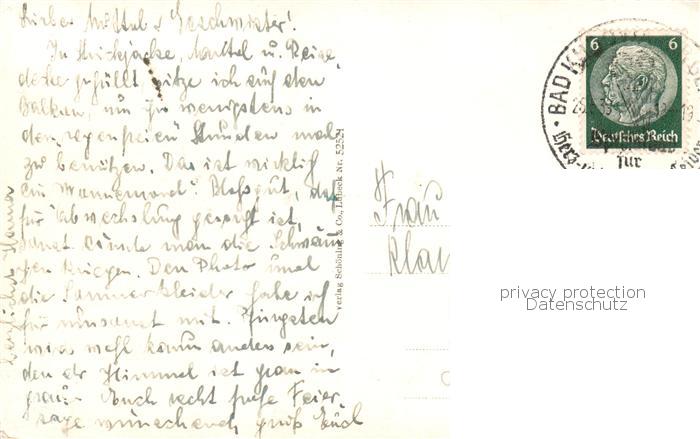 Liebe Mutter u Geschwister!
In Strickjacke, Mantel u. Reise
decke gehüllt sitze ich auf dem
Balkon, um ihn wenigstens in
den regenfreien Stunden mal
zu benützen. Das ist wirklich
ein Wonnemond! Bloss gut, daß
für Abwechslung gesorgt ist,
sonst könnte man die Schwäm
gen kriegen. Den Photo und
die Sommerkleider habe ich
für umsonst mit. Pfingsten
wird wohl kaum anders sein,
denn der Himmel ist grau in
grau. Euch recht frohe Feier
tage wünschend, grüß Euch
herzlichst Hanna
Verlag Schöning & Co., Lübeck Nr. 52521
6 6
Deutsches Reich
BAD
Herz-
für
Frau
Kla
privacy protection
Datenschutz